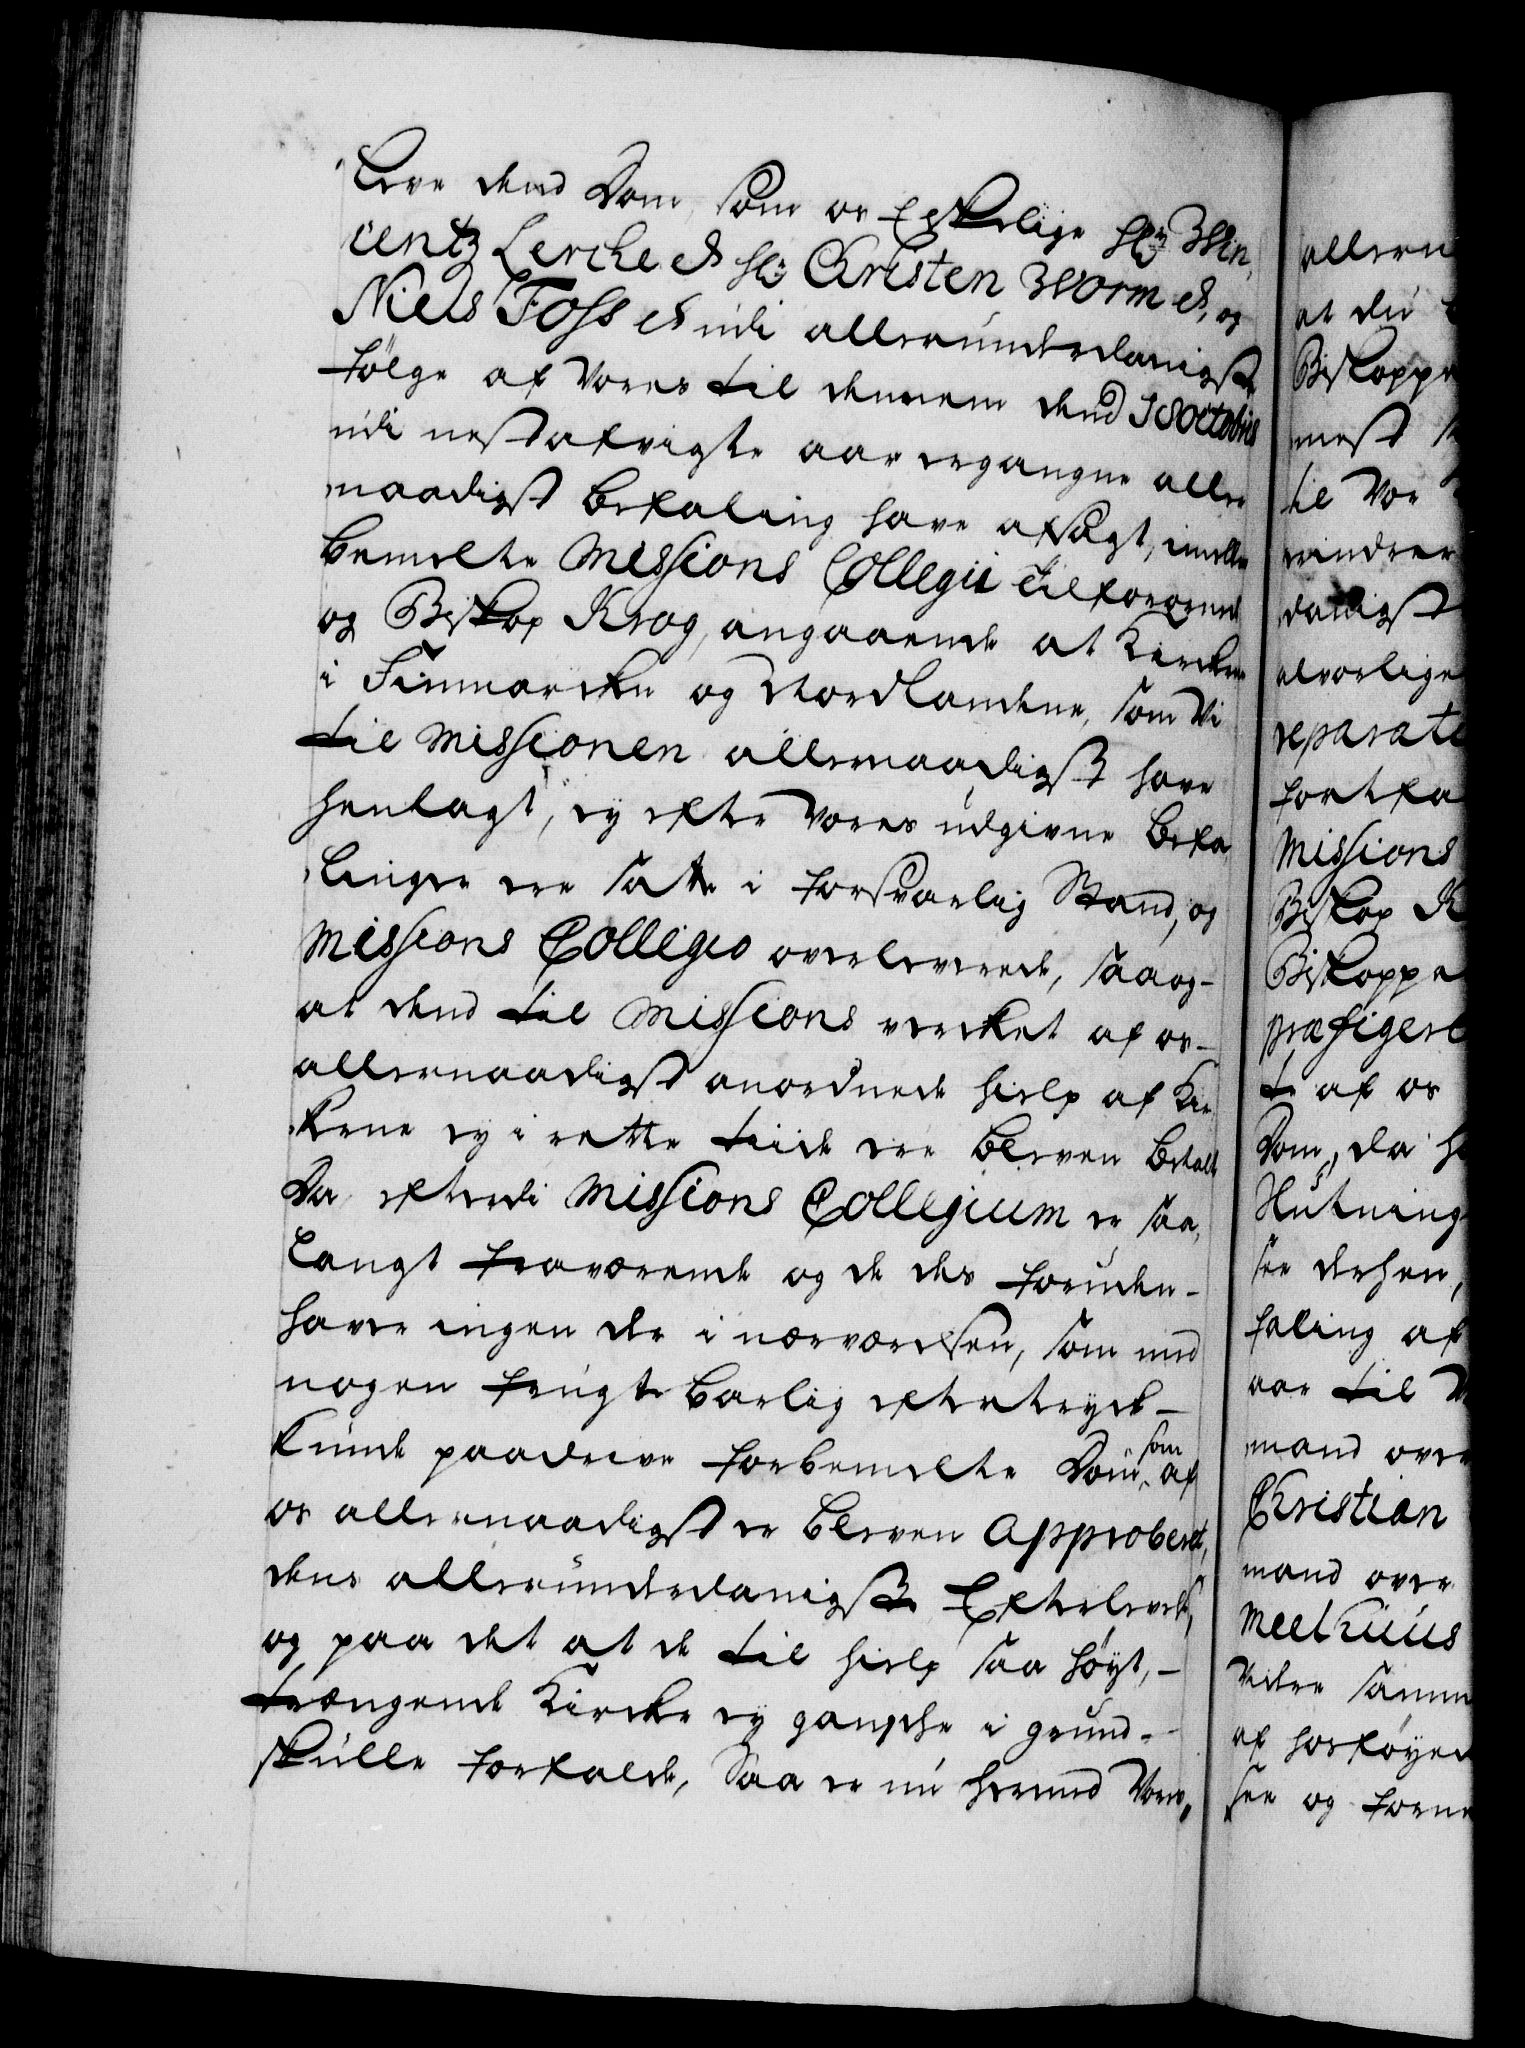 leve dend Dom, som os Elskelige Hr: Win,
centz Lerche &, Hr: Christen Worm &, og
Niels Foss & udi allerunderdanigste
følge af Vores til dennem dend 18 octobris
udi nestafvigte aar ergangne aller
naadigst befaling have afsagt, imellem
bemelte Missions Collegii tilforordnede
og Biskop Krog, angaaende at Kirkerne
i Finmarcken og Nordlandene, som Vi
til Missionen allernaadigst have
henlagt, ey efter Vores udgivne befa
linger ere satte i forsvarlig Stand, og
Missions Collegio overleverede, saa og-
at dend til Missions vercket af os-
allernaadigst anordnede hielp af Kir
kerne ey i rette tiide ere bleven betalt
Da efterdi Missions Collegium er saa,
langt fraværende og de des foruden-
haver ingen der i nærværelsen, som med
nogen frugtbarlig eftertryck-
kunde paadrive forbemelte Dom, som af
os allernaadigst er bleven approberet,
dens allerunderdanigste Efterlevelse,
og paa det at de til hielp saa høyt,-
trængende Kircker ey gansche i grund-
skulle forfalde, Saa er nu hermed Vores,
allern
at du
Biskoppe
mest
til Vor
vindver
danigst
alvorlige
reparate
fortfa
Missions
Biskop K
Biskoppe
præfigere
te af os
Dom, da h
Slutning
see derhen,
faling af
aar til V
mand over
Christian
mand over
Meelhuus
Videre samm
af hosføyed
see og forne